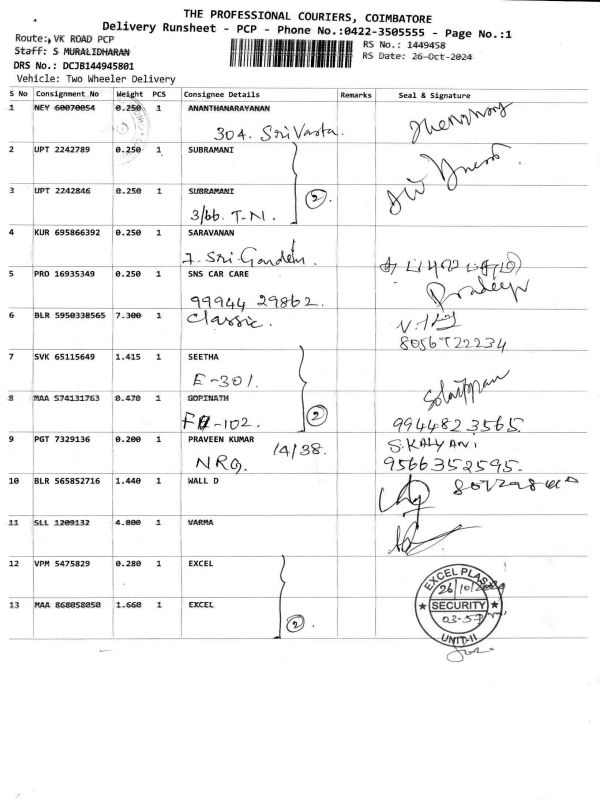 THE PROFESSIONAL COURIERS, COIMBATORE
Delivery Runsheet - PCP - Phone No.:0422-3505555 - Page No.:1
Route: VK ROAD PCP
RS No.: 1449458
Staff: S MURALIDHARAN
RS Date: 26-Oct-2024
DRS No.: DCJB144945801
Vehicle: Two Wheeler Delivery
S No Consignment No Weight PCS Consignee Details Remarks Seal & Signature
1 NEY 60070054 0.250 1 ANANTHANARAYANAN
304. Sri Vasta.
2 UPT 2242789 0.250 1 SUBRAMANI
2
3 UPT 2242846 0.250 1 SUBRAMANI
3/bb. T-N.
4 KUR 695866392 0.250 1 SARAVANAN
7. Sri Garden.
5 PRO 16935349 0.250 1 SNS CAR CARE
99944 29862.
Pradeep
6 BLR 5950338565 7.300 1 CLASSIC
8056722234
7 SVK 65115649 1.415 1 SEETHA
E-301.
8 MAA 574131763 0.470 1 GOPINATH
F-102. 2
9944823565.
9 PGT 7329136 0.200 1 PRAVEEN KUMAR
14/38.
S.KALYANI
NRG.
9566352595.
10 BLR 565852716 1.440 1 WALL D
11 SLL 1209132 4.800 1 VARMA
12 VPM 5475829 0.280 1 EXCEL
EXCEL PLAS
26/10/
13 MAA 868058050 1.660 1 EXCEL
SECURITY
2
03-57
UNIT-II